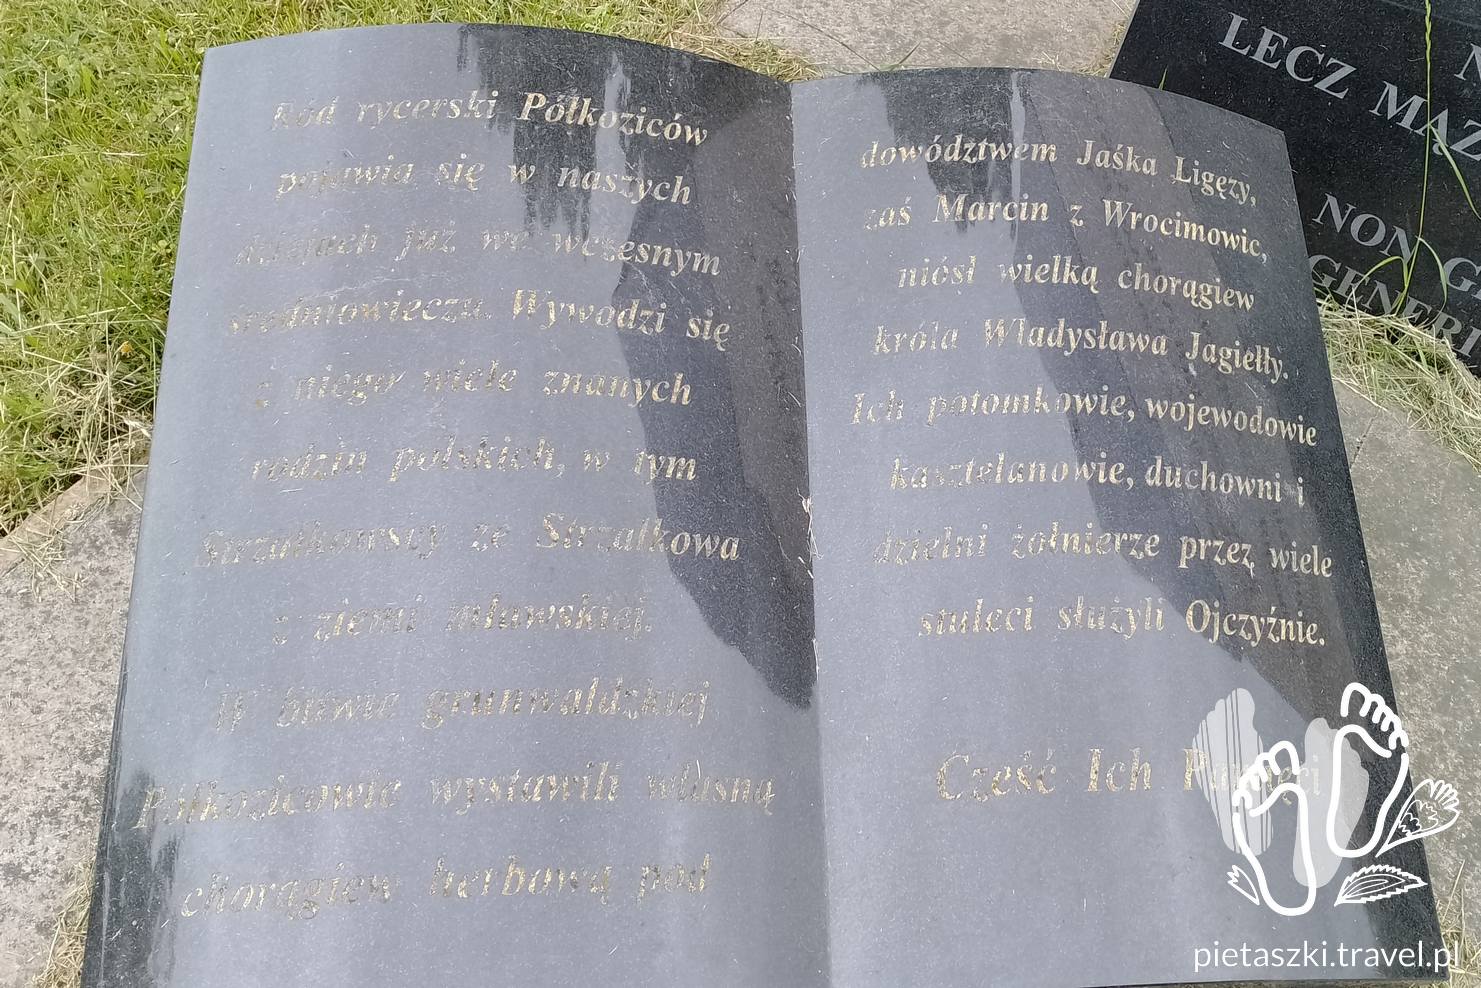 Ród rycerski Półkoziców
pojawia się w naszych
dziejach już we wczesnym
średniowieczu. Wywodzi się
z niego wiele znanych
rodzin polskich, w tym
Strzałkowscy ze Strzałkowa
z ziemi
W bitwie grunwaldzkiej
Półkozicowie wystawili własną
chorągiew herbową pod
dowództwem Jaśka Ligęzy,
zaś Marcin z Wrocimowic,
niósł wielką chorągiew
króla Władysława Jagiełły.
Ich potomkowie, wojewodowie
kasztelanowie, duchowni i
dzielni żołnierze przez wiele
stuleci służyli Ojczyźnie.
Cześć Ich Pamięci
LECZ
NON
pietaszki.travel.pl